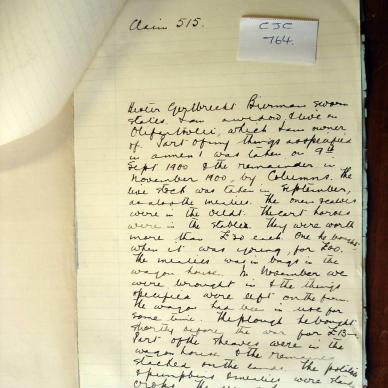 Claim 515.
CJC
764.
Hester Gezbrecht Bierman sworn
states. I am a widow, & live on
which I am owner
of. Part of my things as specified
in annex 1 was taken on 9th
Sept 1900 & the remainder in
November 1900, by Columns. The
live stock was taken in September,
as also the mealies. The oxen
were in the veldt. The cart horses
were in the stables. They were worth
more than £20 each. One he bought
when it was young, for £20.
The mealies was in bags in the
wagon house. In November we
were brought in & the things
specified were left on the farm.
The wagon had been in use for
some time. The plough he bought
shortly before the war for £13
Part of the sheaves were in the
wagon house & the
stacked on the lands. The
& pumpkins & mealies were
crops.